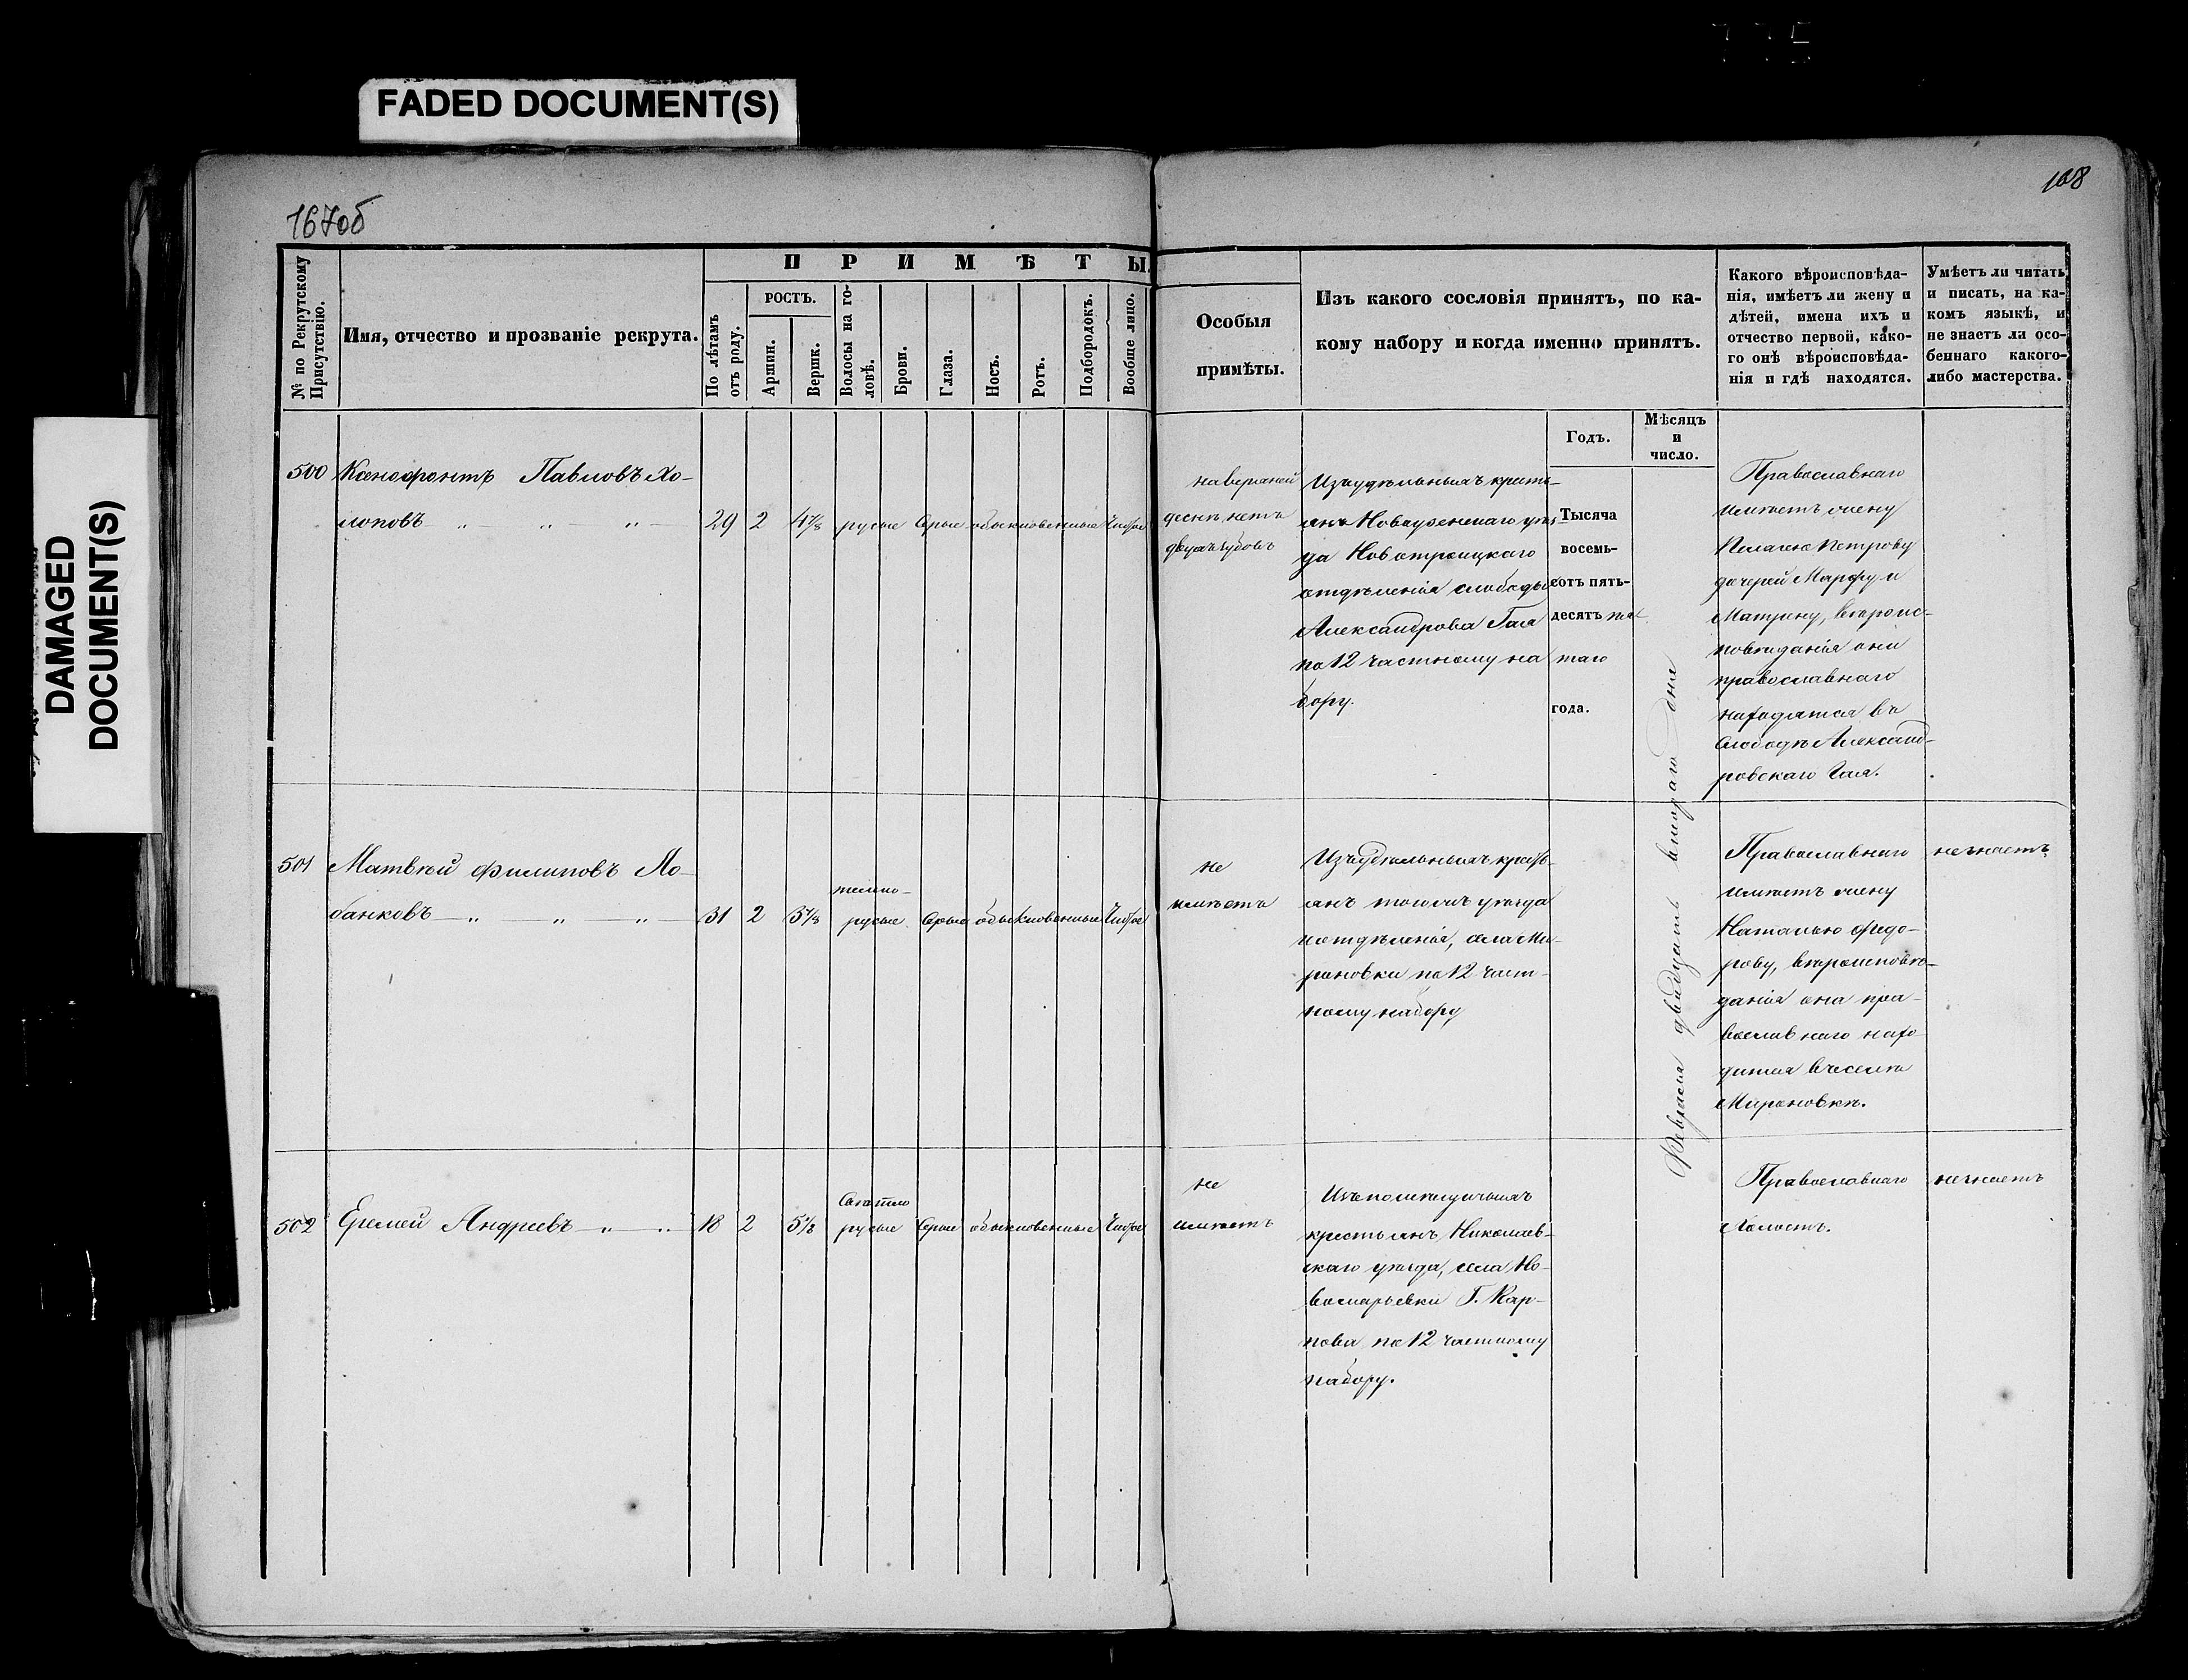 FADED DOCUMENT(S)
DAMAGED
DOCUMENT(S)
167об
168
№ по Рекрутскому
Присутствію.
Имя, отчество и прозваніе рекрута.
ПРИМѢТЫ.
По лѣтамъ
отъ роду.
РОСТЪ.
Аршин.
Вершк.
Волосы на го-
ловѣ.
Брови.
Глаза.
Носъ.
Ротъ.
Подбородокъ.
Вообще лицо.
Особыя
примѣты.
Изъ какого сословія принятъ, по ка-
кому набору и когда именно принятъ.
Какого вѣроисповѣда-
нія, имѣетъ ли жену и
дѣтей, имена ихъ и
отчество первой, како-
го онѣ вѣроисповѣда-
нія и гдѣ находятся.
Умѣетъ ли читать
и писать, на ка-
комъ языкѣ, и
не знаетъ ли осо-
беннаго какого-
либо мастерства.
Годъ.
Мѣсяцъ
и
число.
500 Ксенофонтъ Павловъ Хо-
лоповъ 29 2 4 7/8 русые Серые обыкновенные Чистое
на верхней
десне, нетъ
двухъ зубовъ
Изъ удѣльныхъ кресть-
янъ Новоузенскаго уѣз-
да Новотроицкаго
отдѣленія слободы
Александрова Гая
по 12 частному на
бору.
Тысяча
восемь-
сотъ пять-
десятъ пя-
таго
года.
Февраля двадцать втораго дня
Православнаго
имѣетъ жену
Пелагею Петрову
дочерей Марфу и
Матрену, вѣроис-
повѣданія они
православнаго
находятся въ
Слободѣ Александ-
ровскаго Гая.
501 Матвѣй Филиповъ Ло-
банковъ 31 2 3 7/8
темно-
русые Серые обыкновенные Чистое
не
имѣетъ
Изъ удѣльныхъ кресть-
янъ тогожъ уѣзда
и отдѣленія, села Ми-
роновки по 12 част-
ному набору
Православнаго
имѣетъ жену
Наталью Федо-
рову, вѣроисповѣ-
данія она пра-
вославнаго нахо
дится въ селѣ
Мироновкѣ.
не знаетъ
502 Еремей Андреевъ 18 2 5 1/8
Светло
русые Серые обыкновенные Чистое
не
имѣетъ
Изъ помѣщичьихъ
крестьянъ Николаев-
скаго уѣзда, села Но-
вомарьевки Г. Кар-
пова по 12 частному
набору.
Православнаго
Холостъ.
не знаетъ